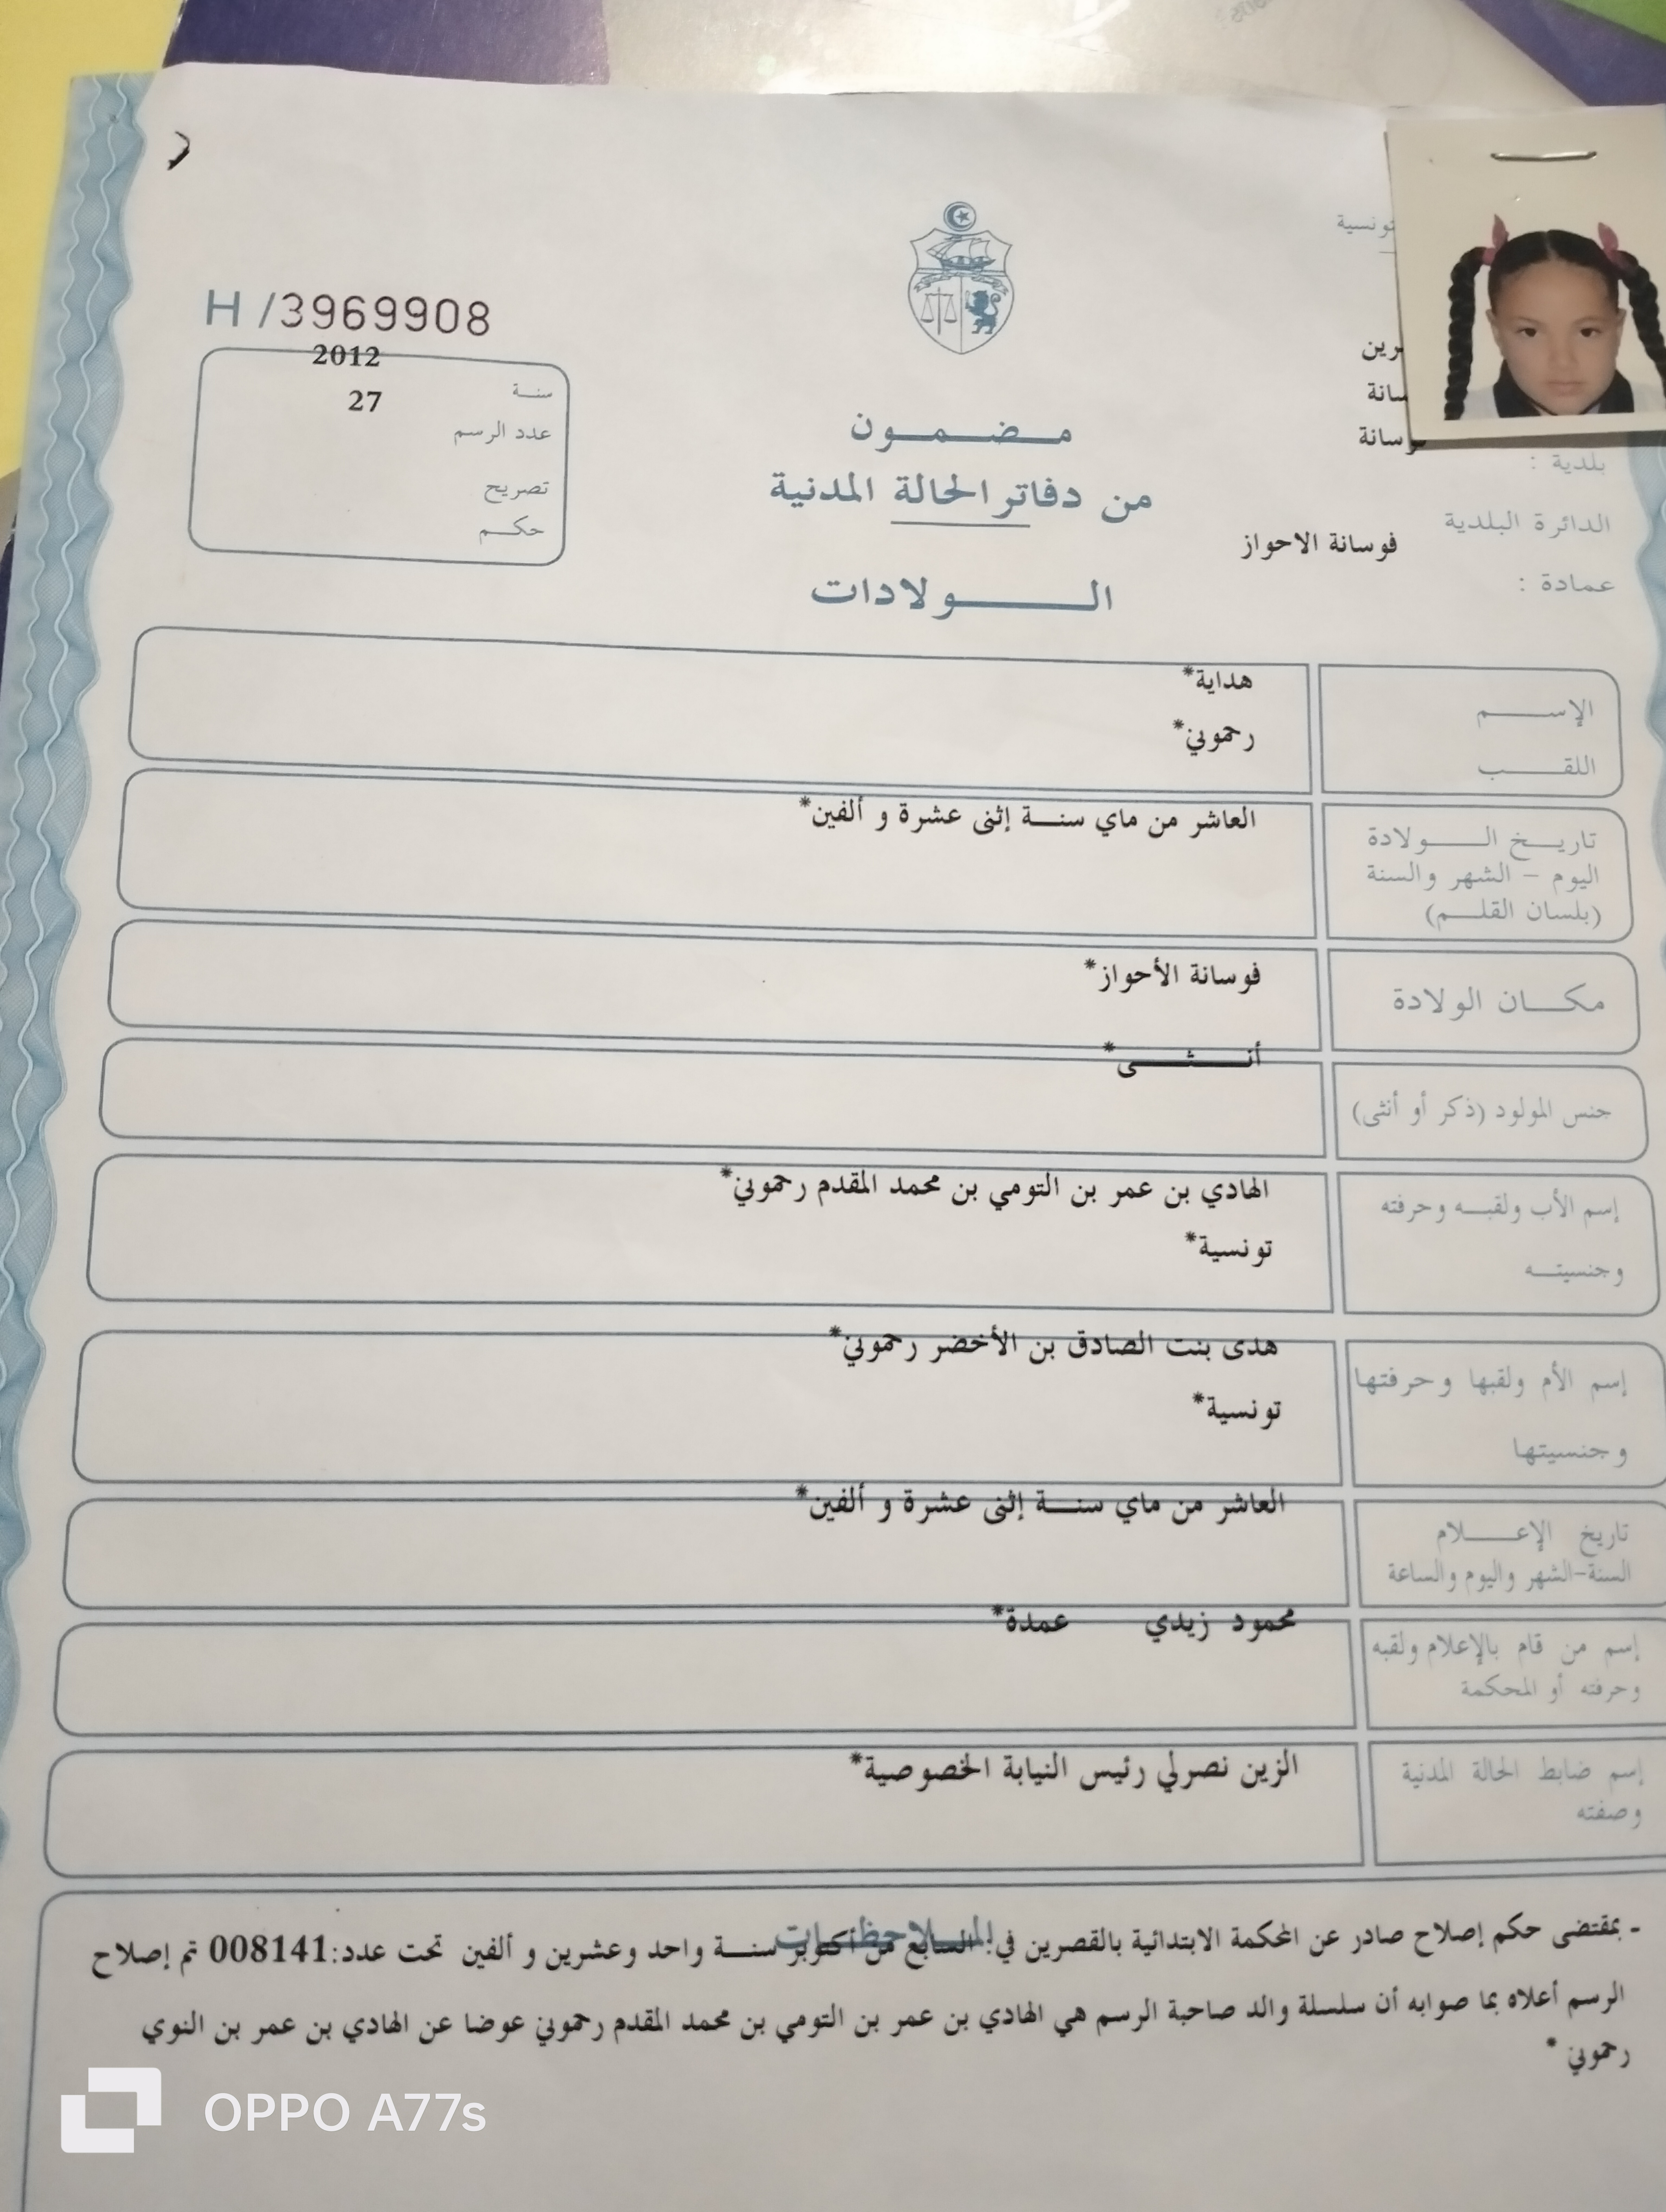 تونسية
H /3969908
2012
سنة
27
عدد الرسم
تصريح
حكم
مضمون
من دفاتر الحالة المدنية
الولادات
بلدية :
الدائرة البلدية
فوسانة الاحواز
عمادة :
الإسم
هداية*
اللقب
رحموني*
تاريخ الولادة
اليوم - الشهر والسنة
(بلسان القلم)
العاشر من ماي سنة إثنى عشرة و ألفين*
مكان الولادة
فوسانة الأحواز*
جنس المولود (ذكر أو أنثى)
أنثى*
إسم الأب ولقبه وحرفته
وجنسيته
الهادي بن عمر بن التومي بن محمد المقدم رحموني*
تونسية*
إسم الأم ولقبها وحرفتها
وجنسيتها
هدى بنت الصادق بن الأخضر رحموني*
تونسية*
تاريخ الإعلام
السنة-الشهر واليوم والساعة
العاشر من ماي سنة إثنى عشرة و ألفين*
إسم من قام بالإعلام ولقبه
وحرفته أو المحكمة
محمود زيدي عمدة*
إسم ضابط الحالة المدنية
وصفته
الزين نصرلي رئيس النيابة الخصوصية*
الملاحظات
- بمقتضى حكم إصلاح صادر عن المحكمة الابتدائية بالقصرين في: السابع من أكتوبر سنة واحد وعشرين و ألفين تحت عدد:008141 تم إصلاح
الرسم أعلاه بما صوابه أن سلسلة والد صاحبة الرسم هي الهادي بن عمر بن التومي بن محمد المقدم رحموني عوضا عن الهادي بن عمر بن النوي
رحموني *
OPPO A77s